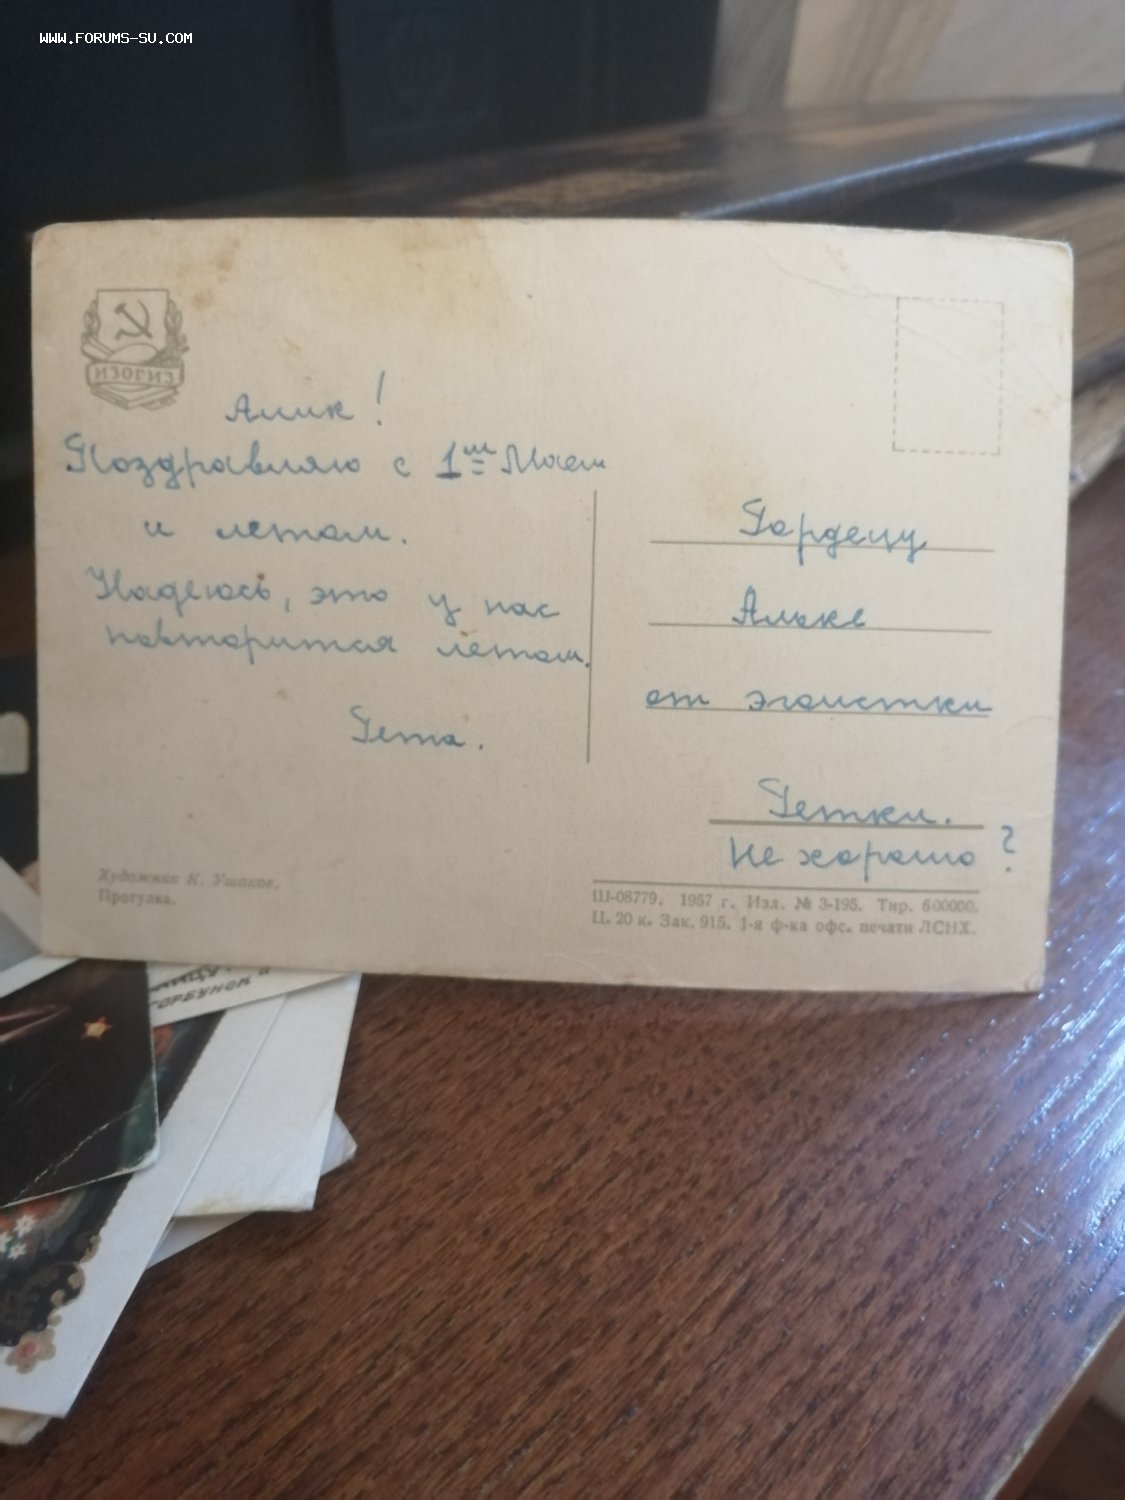 WWW.FORUMS-SU.COM
ИЗОГИЗ
Алик!
Поздравляю с 1м Маем
и летом.
Надеюсь, это у нас
повторится летом.
Гета.
Художник К. Ушаков.
Прогулка.
Гордецу
Альке
от эгоистки
Гетки.
Не хорошо?
Ш-08779. 1957 г. Изд. № 3-195. Тир. 600000.
Ц. 20 к. Зак. 915. 1-я ф-ка офс. печати ЛСНХ.
ГОРБУНОК